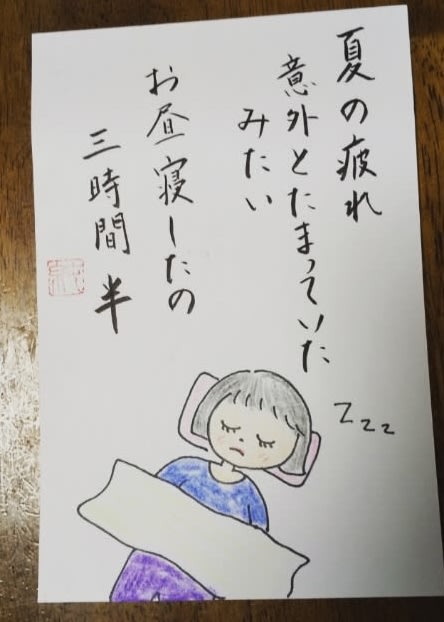 夏の疲れ
意外とたまっていた
みたい
お昼寝したの
三時間半
zzz